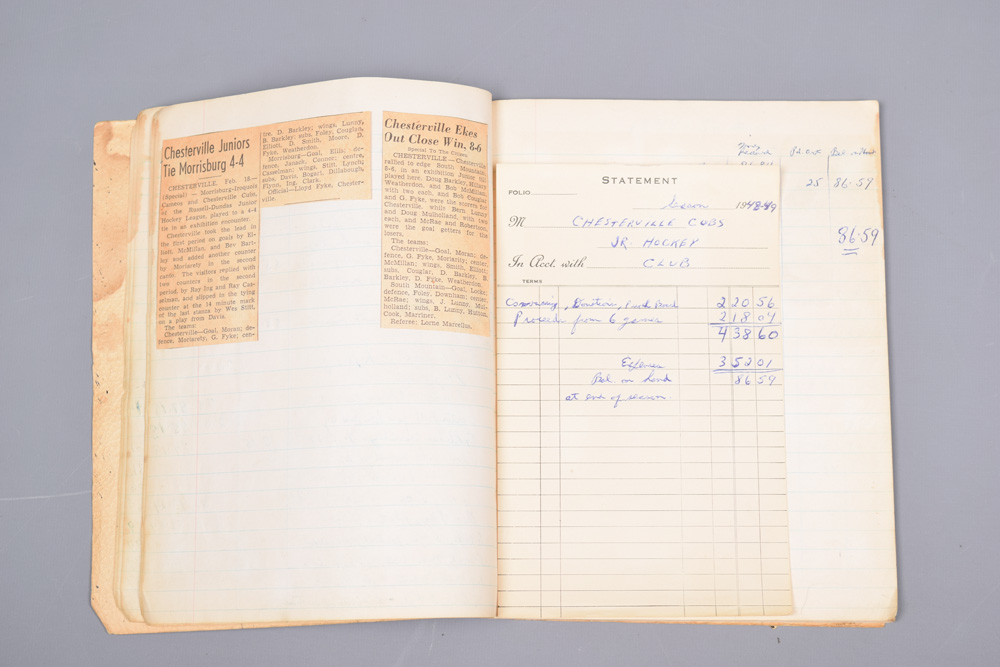 Chesterville Juniors
Tie Morrisburg 4-4
CHESTERVILLE, Feb. 18.—
(Special) — Morrisburg-Iroquois
Canucs and Chesterville Cubs,
of the Russell-Dundas Junior
Hockey League, played to a 4-4
tie in an exhibition encounter.
Chesterville took the lead in
the first period on goals by El-
liott, McMillan, and Bev Bark-
ley and added another counter
by Moriarity in the second
canto. The visitors replied with
two counters in the second
period by Ray Ing and Ray Cas-
selman, and slipped in the tying
counter at the 14 minute mark
of the last stanza by Wes Still,
on a play from Davis.
The teams:
Chesterville—Goal, Moran; de-
fence, Moriarety, G. Fyke; cen-
tre, D. Barkley; wings, Lunny,
B. Barkley; subs, Foley, Couglan,
Elliott, D. Smith, Moore, D.
Fyke, Weatherdon.
Morrisburg—Goal, Ellis; de-
fence, Janack, Connor; centre,
Casselman; wings, Still, Lynch;
subs, Davis, Bogart, Dillabough,
Flynn, Ing, Clark.
Official—Lloyd Fyke, Chester-
ville.
Chesterville Ekes
Out Close Win, 8-6
Special To The Citizen
CHESTERVILLE — Chesterville
rallied to edge South Mountain,
8-6, in an exhibition Junior tilt
played here. Doug Barkley, Hillary
Weatherdon, and Bob McMillan,
with two each, and Bob Couglar
and G. Fyke, were the scorers for
Chesterville, while Bern Lunny
and Doug Mulholland, with two
each, and McRae and Robertson,
were the goal getters for the
losers.
The teams:
Chesterville—Goal, Moran; de-
fence, G. Fyke, Moriarity; center,
McMillan; wings, Smith, Elliott;
subs, Couglar, D. Barkley, B.
Barkley, D. Fyke, Weatherdon.
South Mountain—Goal, Locke;
defence, Fuler, Downham; center,
McRae; wings, J. Lunny, Mul-
holland; subs, B. Lunny,
Cook, Marriner.
Referee: Lorne Marcellus.
STATEMENT
FOLIO
Season 1948-49
M CHESTERVILLE CUBS
JR. HOCKEY
In Acct. with CLUB
TERMS
220 56
Proceeds from 6 games 218 04
438 60
Expenses 352 01
Bal on hand 86 59
at end of season.
25 86.59
86.59